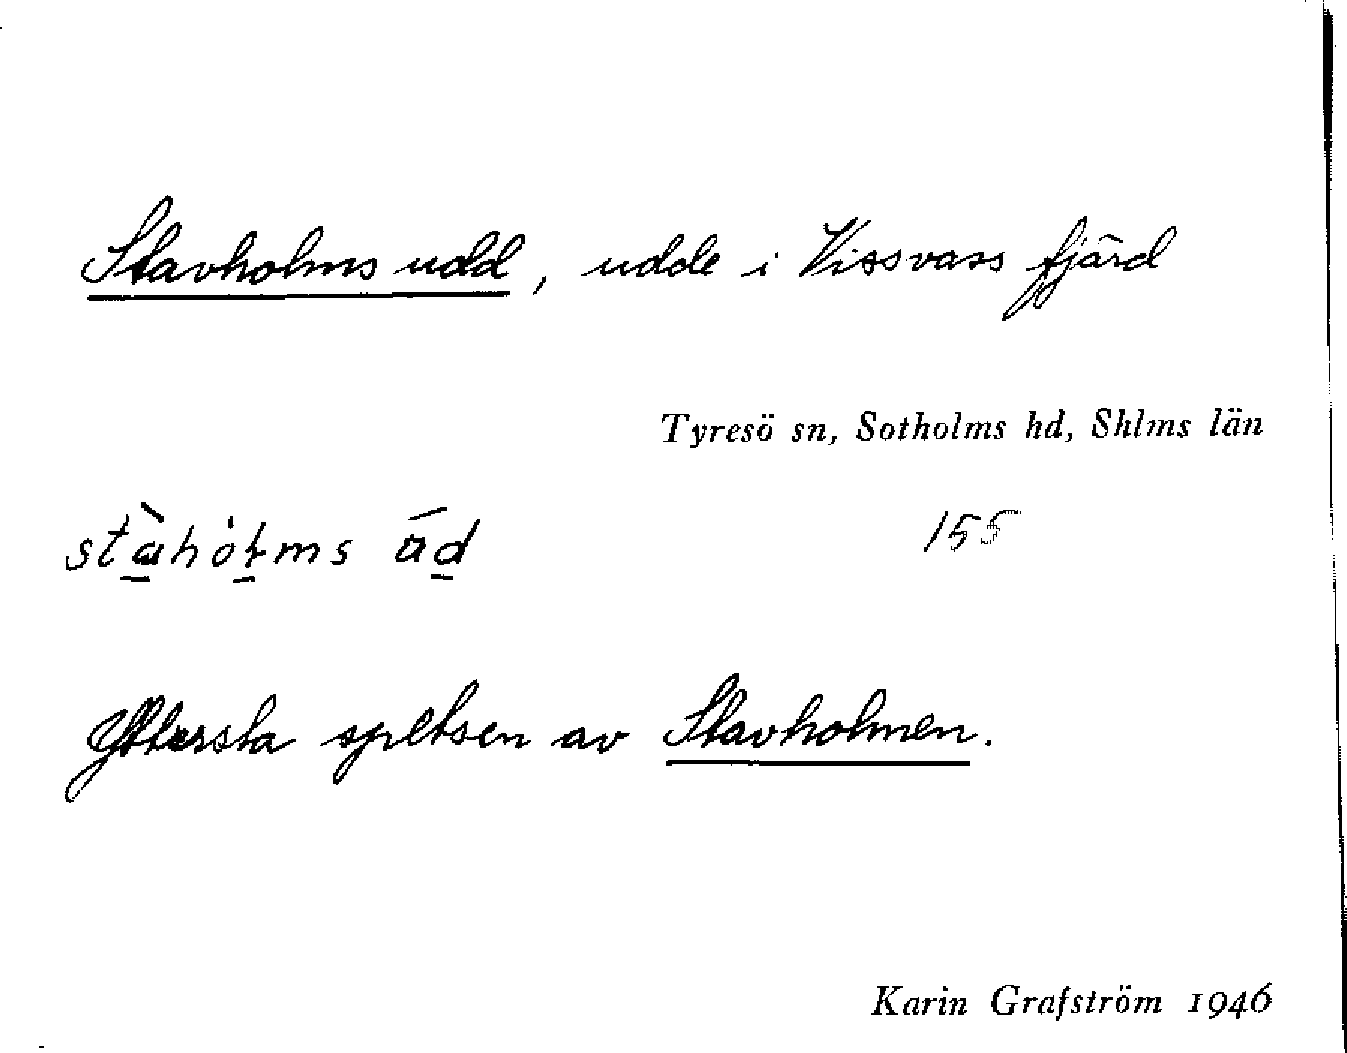 Stavholms udd, udde i Vissvass fjärd
Tyresö sn, Sotholms hd, Shlms län
155
Yttersta spetsen av Stavholmen.
Karin Grafström 1946